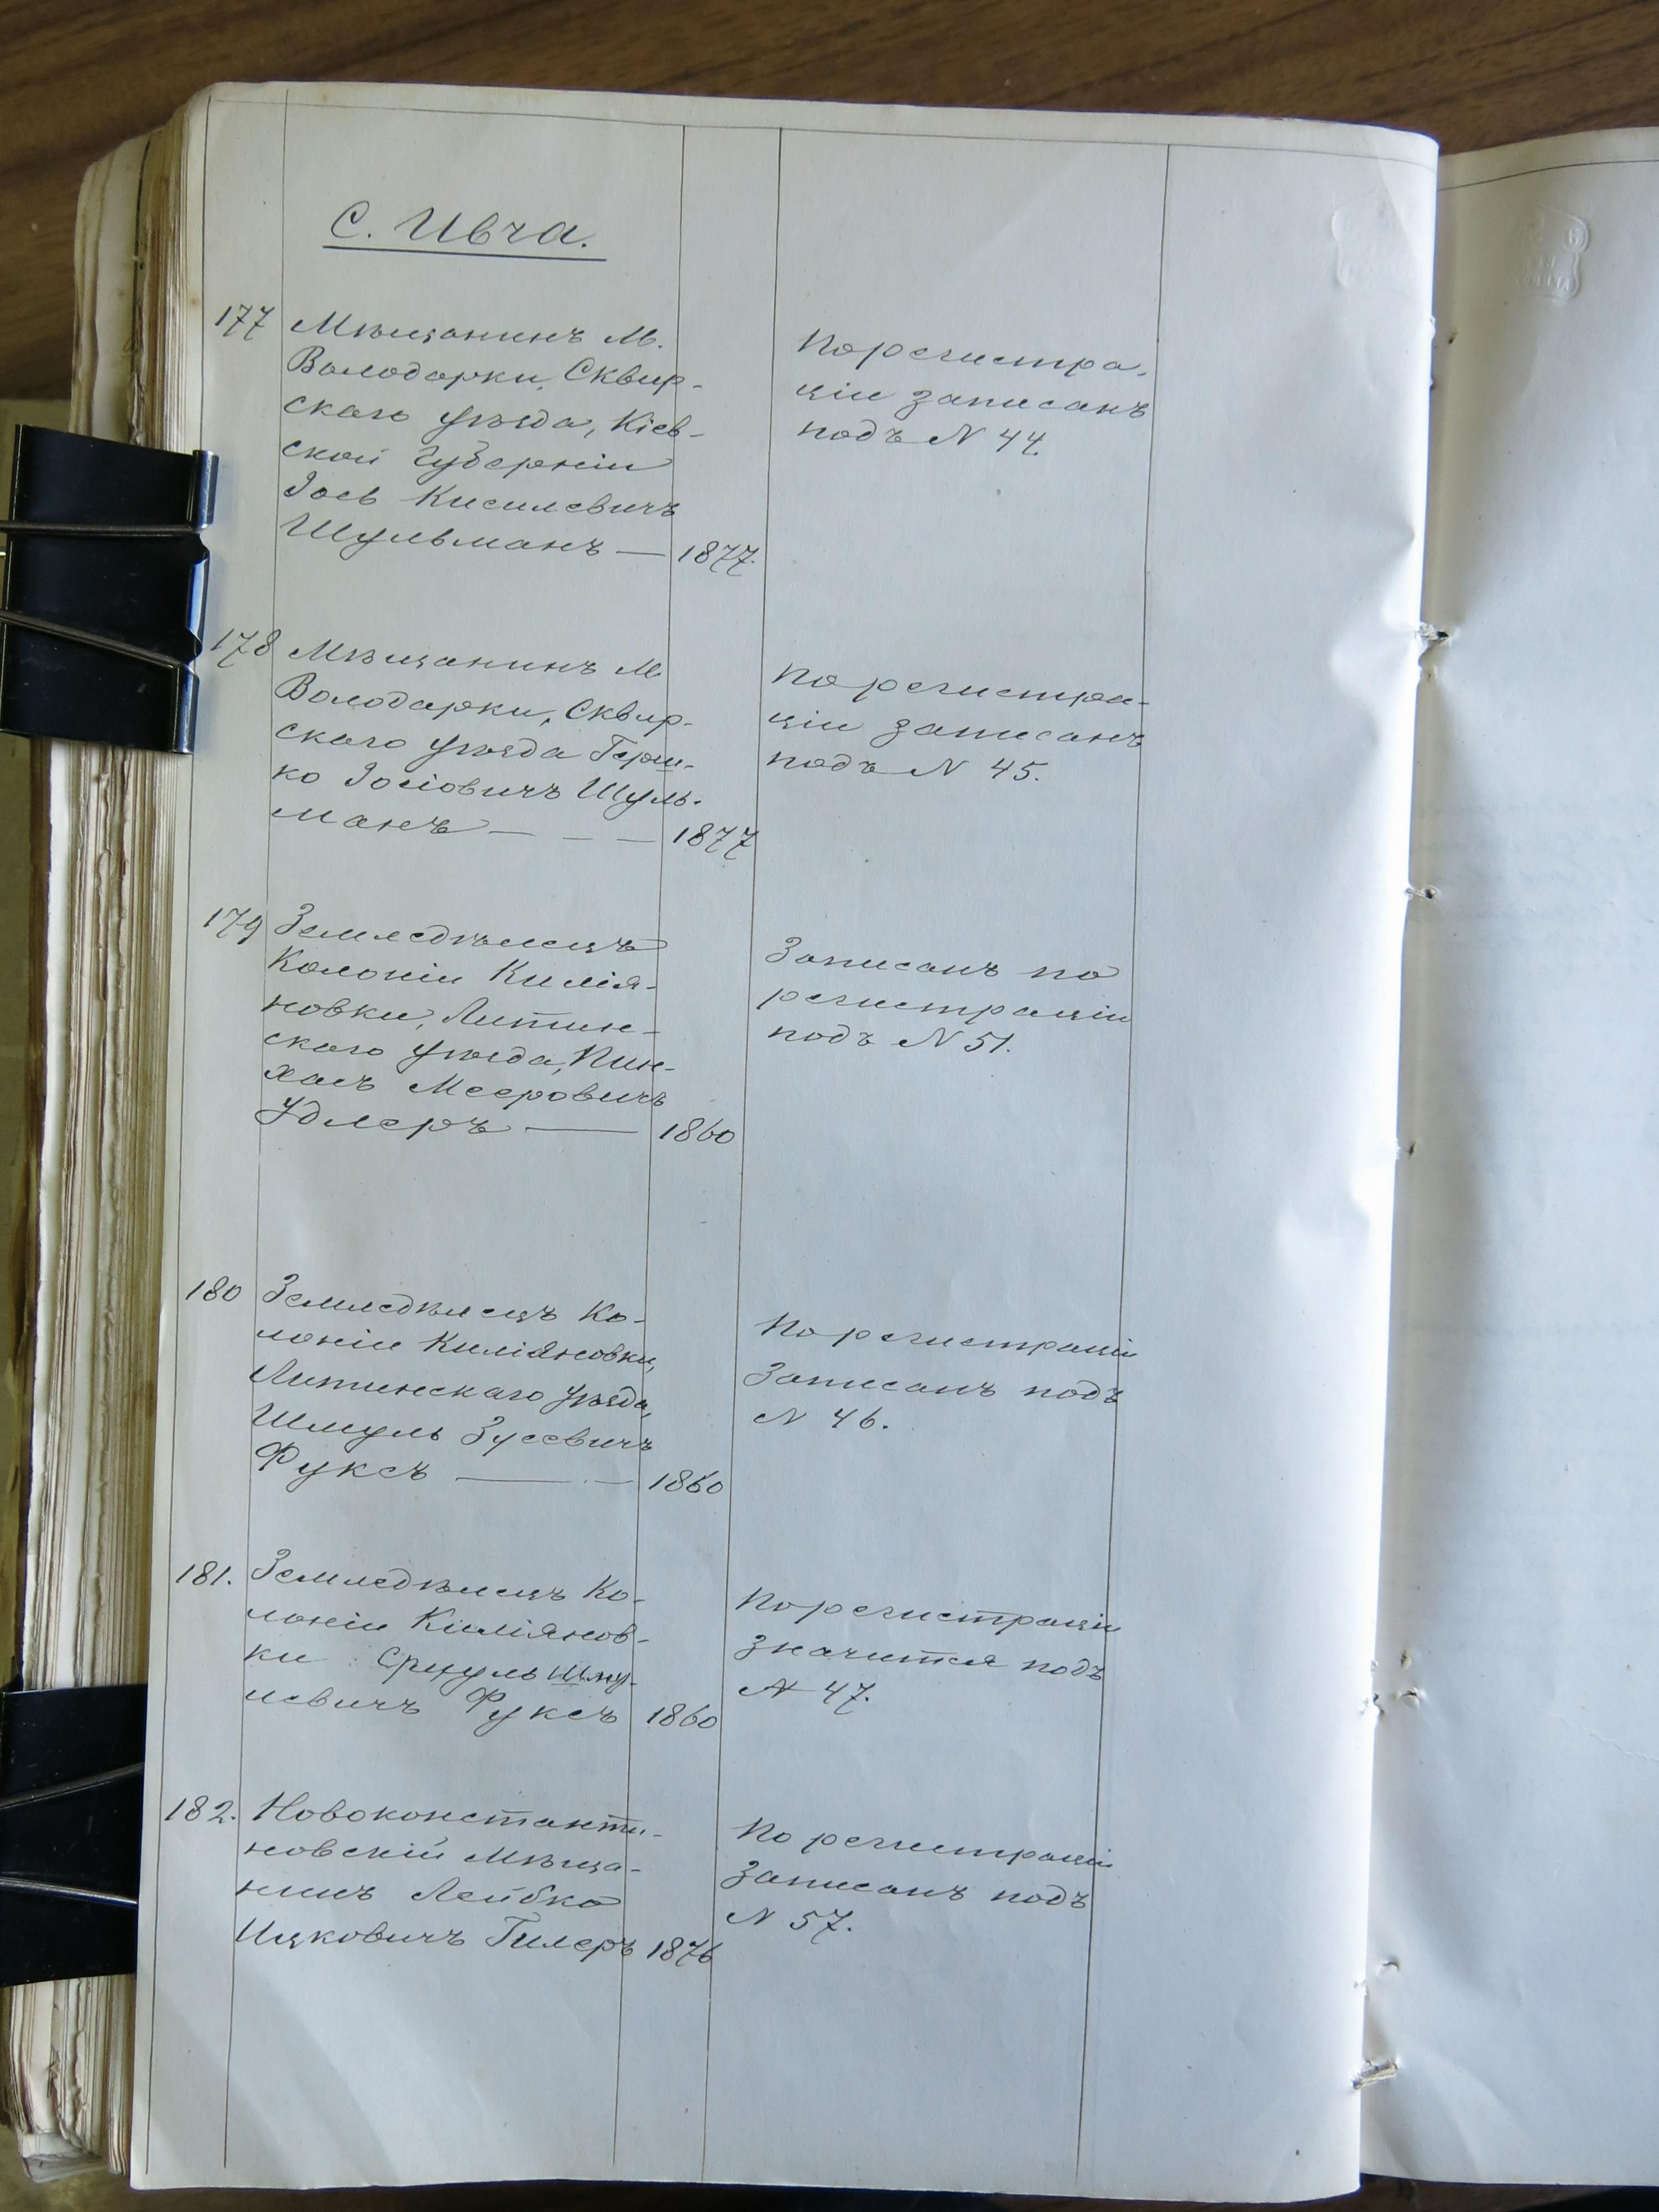 С. Ивча.
177 Мѣщанинъ М.
Володарки, Сквир-
скаго уѣзда, Кіев-
ской Губерніи
Іось Кисилевичъ
Шульманъ — 1877.
По регистра-
ціи записанъ
подъ N 44.
178 Мѣщанинъ М.
Володарки, Сквир-
скаго уѣзда Герш-
ко Іосіовичъ Шуль-
манъ — — — 1877
По регистра-
ціи записанъ
подъ N 45.
179 Земледѣлецъ
Колоніи Килія-
новки, Литин-
скаго уѣзда, Пин-
хасъ Мееровичъ
Удлеръ — 1860
Записанъ по
регистраціи
подъ N 51.
180 Земледѣлецъ Ко-
лоніи Киліяновки,
Литинскаго уѣзда,
Шмуль Зусевичъ
Фуксъ — — 1860
По регистраціи
Записанъ подъ
N 46.
181. Земледѣлецъ Ко-
лоніи Киліянов-
ки Сруль Шму-
левичъ Фуксъ 1860
По регистраціи
значится подъ
N 47.
182. Новоконстанти-
новскій мѣща-
нинъ Лейбко
Ицковичъ Гилеръ 1876
По регистраціи
Записанъ подъ
N 57.